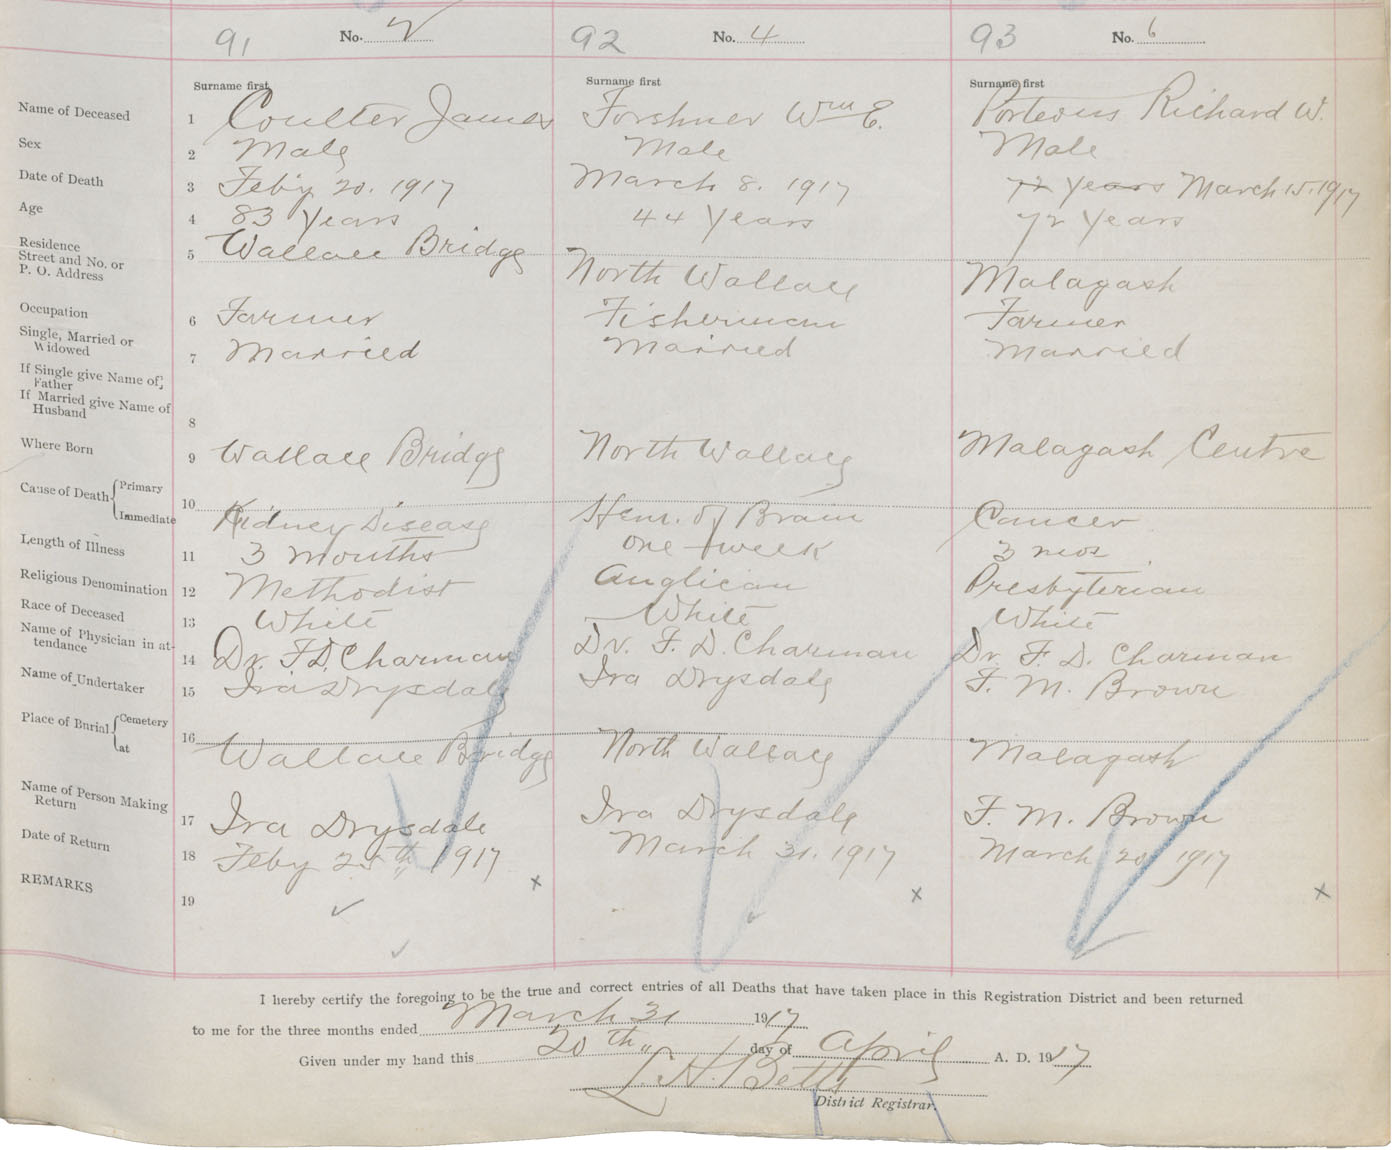 91 No. 2 92 No. 4 93 No. 6
Surname first Surname first Surname first
Name of Deceased 1 Coulter James Forshner Wm E. Porteous Richard W.
Sex 2 Male Male Male
Date of Death 3 Feb'y 20. 1917 March 8. 1917 72 Years March 15. 1917
Age 4 83 Years 44 Years 72 Years
Residence
Street and No. or
P. O. Address 5 Wallace Bridge North Wallace Malagash
Occupation 6 Farmer Fisherman Farmer
Single, Married or
Widowed 7 Married Married Married
If Single give Name of
Father
If Married give Name of
Husband 8
Where Born 9 Wallace Bridge North Wallace Malagash Centre
Cause of Death { Primary 10
Immediate Kidney Disease Hem. of Brain Cancer
Length of Illness 11 3 months one week 3 mos
Religious Denomination 12 Methodist Anglican Presbyterian
Race of Deceased 13 White White White
Name of Physician in at-
tendance 14 Dr. F. D. Charman Dr. F. D. Charman Dr. F. D. Charman
Name of Undertaker 15 Ira Drysdale Ira Drysdale F. M. Brown
Place of Burial { Cemetery 16
at Wallace Bridge North Wallace Malagash
Name of Person Making
Return 17 Ira Drysdale Ira Drysdale F. M. Brown
Date of Return 18 Feby 25th, 1917 March 31. 1917 March 20 1917
REMARKS 19
I hereby certify the foregoing to be the true and correct entries of all Deaths that have taken place in this Registration District and been returned
to me for the three months ended March 31 1917
Given under my hand this 20th day of April A. D. 1917
L. H. Betts
District Registrar.